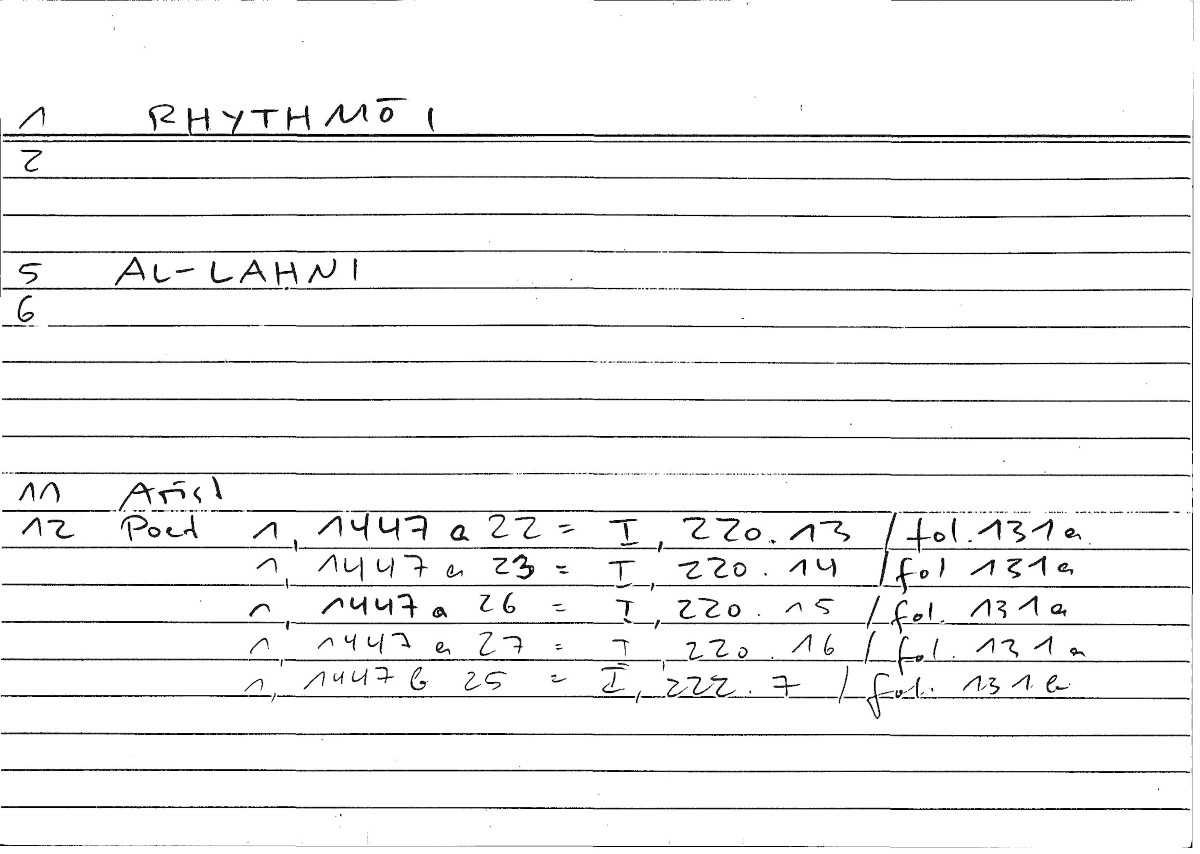 1 RHYTHMŌI
2
5 AL-LAHNI
6
11 Arist
12 Poet 1, 1447 a 22 = I, 220.13 / fol. 131a
1, 1447 a 23 = I, 220.14 / fol 131a
1, 1447 a 26 = I, 220.15 / fol. 131a
1, 1447 a 27 = I, 220.16 / fol. 131a
1, 1447 b 25 = I, 222.7 / fol. 131b